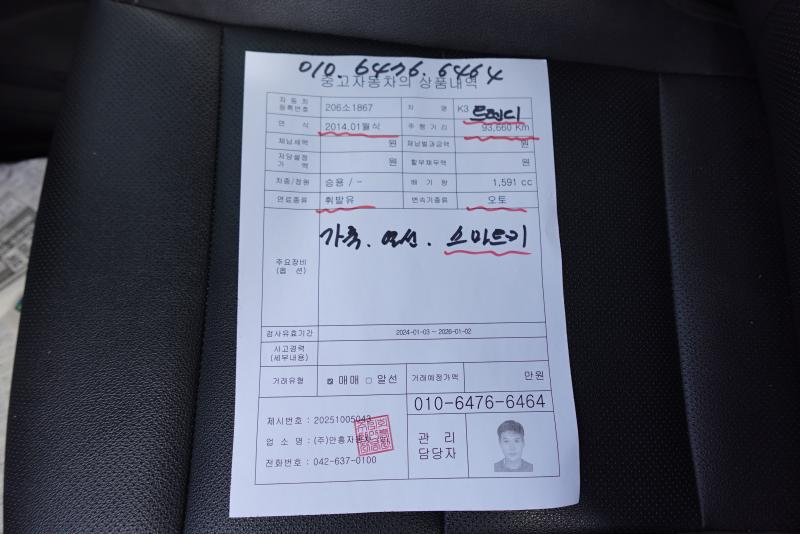 010. 6476. 6464
중고자동차의 상품내역
자동차 등록번호 206소1867 차 명 K3 트렌디
연 식 2014.01월식 주행거리 93,660 Km
체납세액 원 체납범과금액 원
저당설정 가 액 원 할부채무액 원
차종/정원 승용 / - 배 기 량 1,591 cc
연료종류 휘발유 변속기종류 오토
주요장비 (옵 션) 가죽. 열선. 스마트키
검사유효기간 2024-01-03 ~ 2026-01-02
사고경력 (세부내용)
거래유형 ☑ 매매 □ 알선 거래예정가액 만원
010-6476-6464
제시번호 : 20251005043
업 소 명 : (주)안흥자동차
전화번호 : 042-637-0100
관 리
담당자